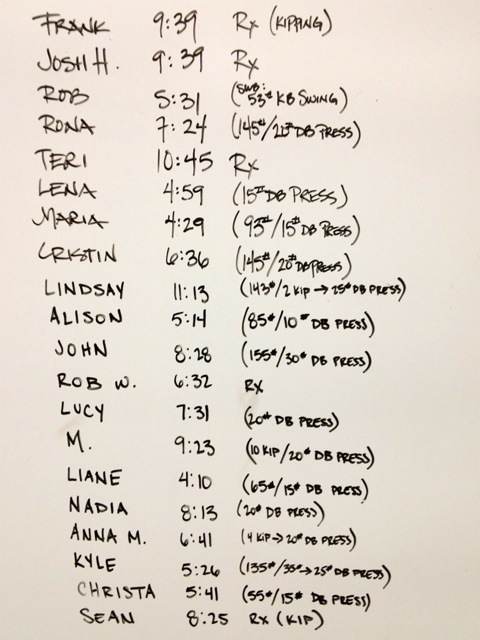 FRANK 9:39 Rx (KIPPING)
JOSH H. 9:39 Rx
ROB 5:31 (SUB: 53# KB SWING)
RONA 7:24 (145#/20# DB PRESS)
TERI 10:45 Rx
LENA 4:59 (15# DB PRESS)
MARIA 4:29 (93#/15# DB PRESS)
CRISTIN 6:36 (145#/20# DB PRESS)
LINDSAY 11:13 (143#/2 KIP → 25# DB PRESS)
ALISON 5:14 (85#/10# DB PRESS)
JOHN 8:28 (155#/30# DB PRESS)
ROB W. 6:32 RX
LUCY 7:31 (20# DB PRESS)
M. 9:23 (10 KIP/20# DB PRESS)
LIANE 4:10 (65#/15# DB PRESS)
NADIA 8:13 (20# DB PRESS)
ANNA M. 6:41 (4 KIP → 20# DB PRESS)
KYLE 5:26 (135#/35# → 25# DB PRESS)
CHRISTA 5:41 (55#/15# DB PRESS)
SEAN 8:25 RX (KIP)